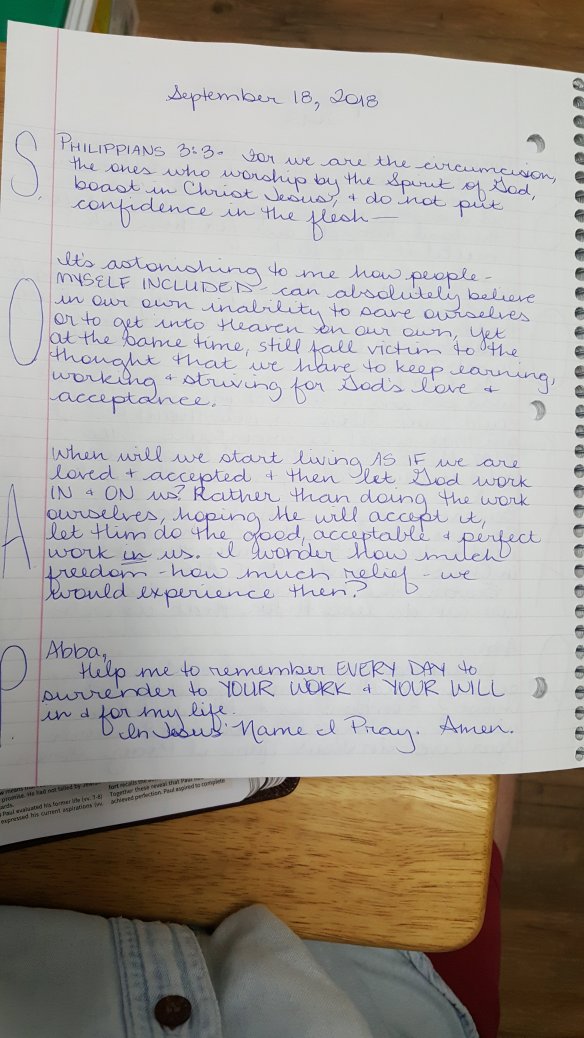 September 18, 2018
S.
PHILIPPIANS 3:3- For we are the circumcision,
the ones who worship by the Spirit of God,
boast in Christ Jesus, & do not put
confidence in the flesh—
O
It's astonishing to me how people -
MYSELF INCLUDED - can absolutely believe
in our own inability to save ourselves
or to get into Heaven on our own, yet
at the same time, still fall victim to the
thought that we have to keep earning,
working & striving for God's love &
acceptance.
A
When will we start living AS IF we are
loved & accepted & then let God work
IN & ON us? Rather than doing the work
ourselves, hoping He will accept it,
let Him do the good, acceptable & perfect
work in us. I wonder how much
freedom - how much relief - we
would experience then?
P.
Abba,
Help me to remember EVERY DAY to
surrender to YOUR WORK & YOUR WILL
in & for my life.
In Jesus' Name I Pray. Amen.
promise. He had not failed by
Paul evaluated his former life (vv. 7-8)
expressed his current aspirations (vv.
fort recalls the
Together these reveal that Paul
achieved perfection. Paul aspired to complete